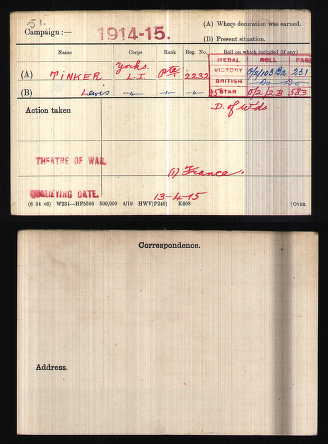 Campaign:— 1914-15.
(A) Where decoration was earned.
(B) Present situation.
Name Corps Rank Reg. No. Roll on which included (if any)
MEDAL ROLL PAGE
(A) TINKER Yorks. L.I. Pte 2232
VICTORY 0/2/103 B2 231
BRITISH Do Do
(B) Lewis
15 STAR 0/2/2B 583
Action taken D. of Wds
THEATRE OF WAR.
(1) France.
QUALIFYING DATE. 13-4-15
(6 34 46) W234—HP5590 500,000 4/19 HWV(P240) K608 [Over.
Correspondence.
Address.